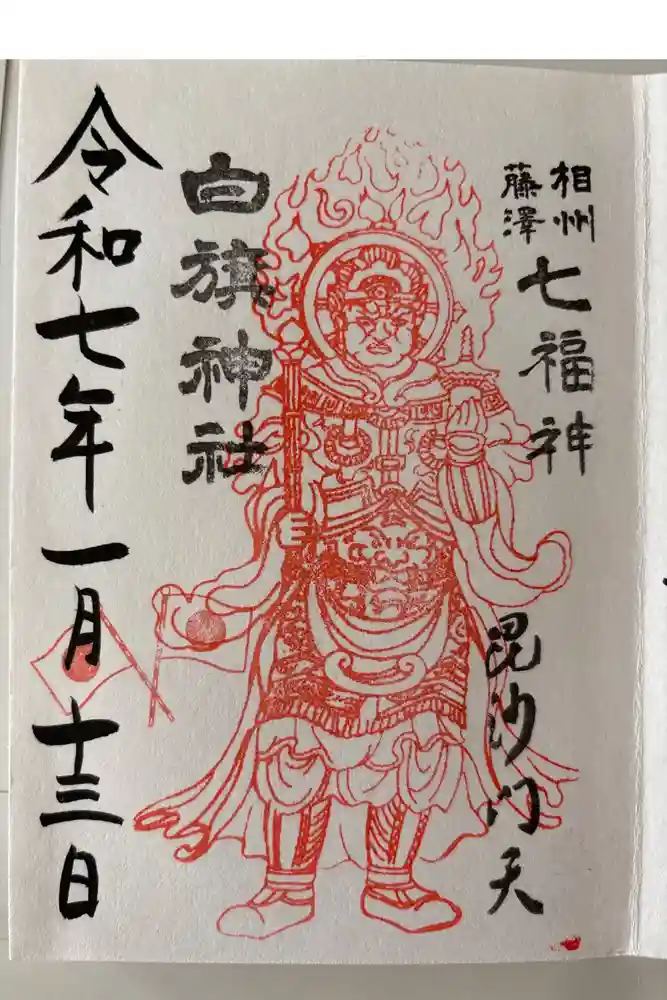 相州
藤澤
七福神
毘沙門天
白旗神社
令和七年一月十三日